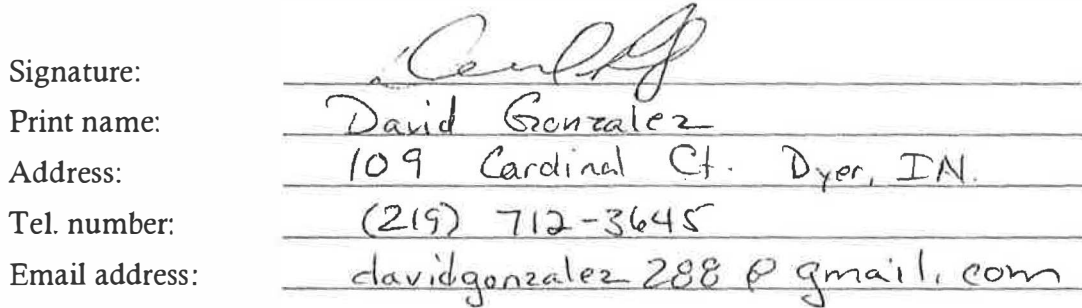 Signature:
Print name: David Gonzalez
Address: 109 Cardinal Ct. Dyer, IN.
Tel. number: (219) 712-3645
Email address: davidgonzalez288@gmail.com